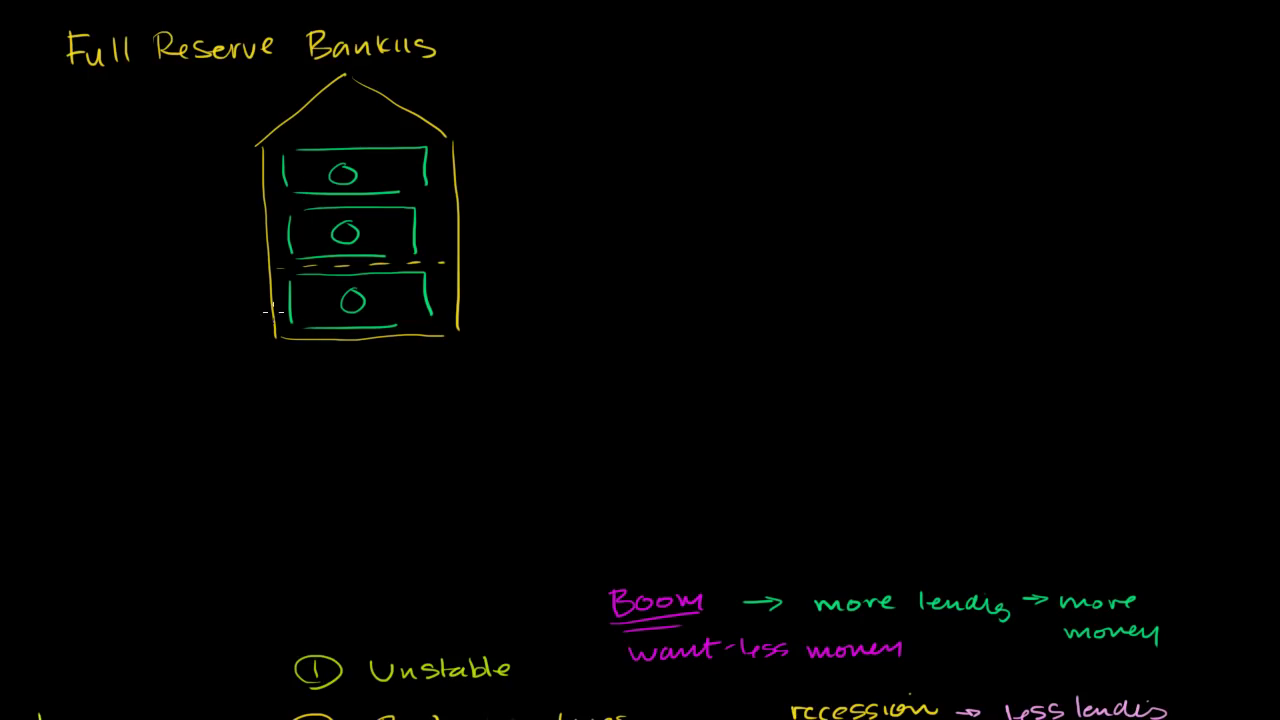 Full Reserve Banking
Boom → more lending → more
money
want less money
① Unstable
recession → less lending